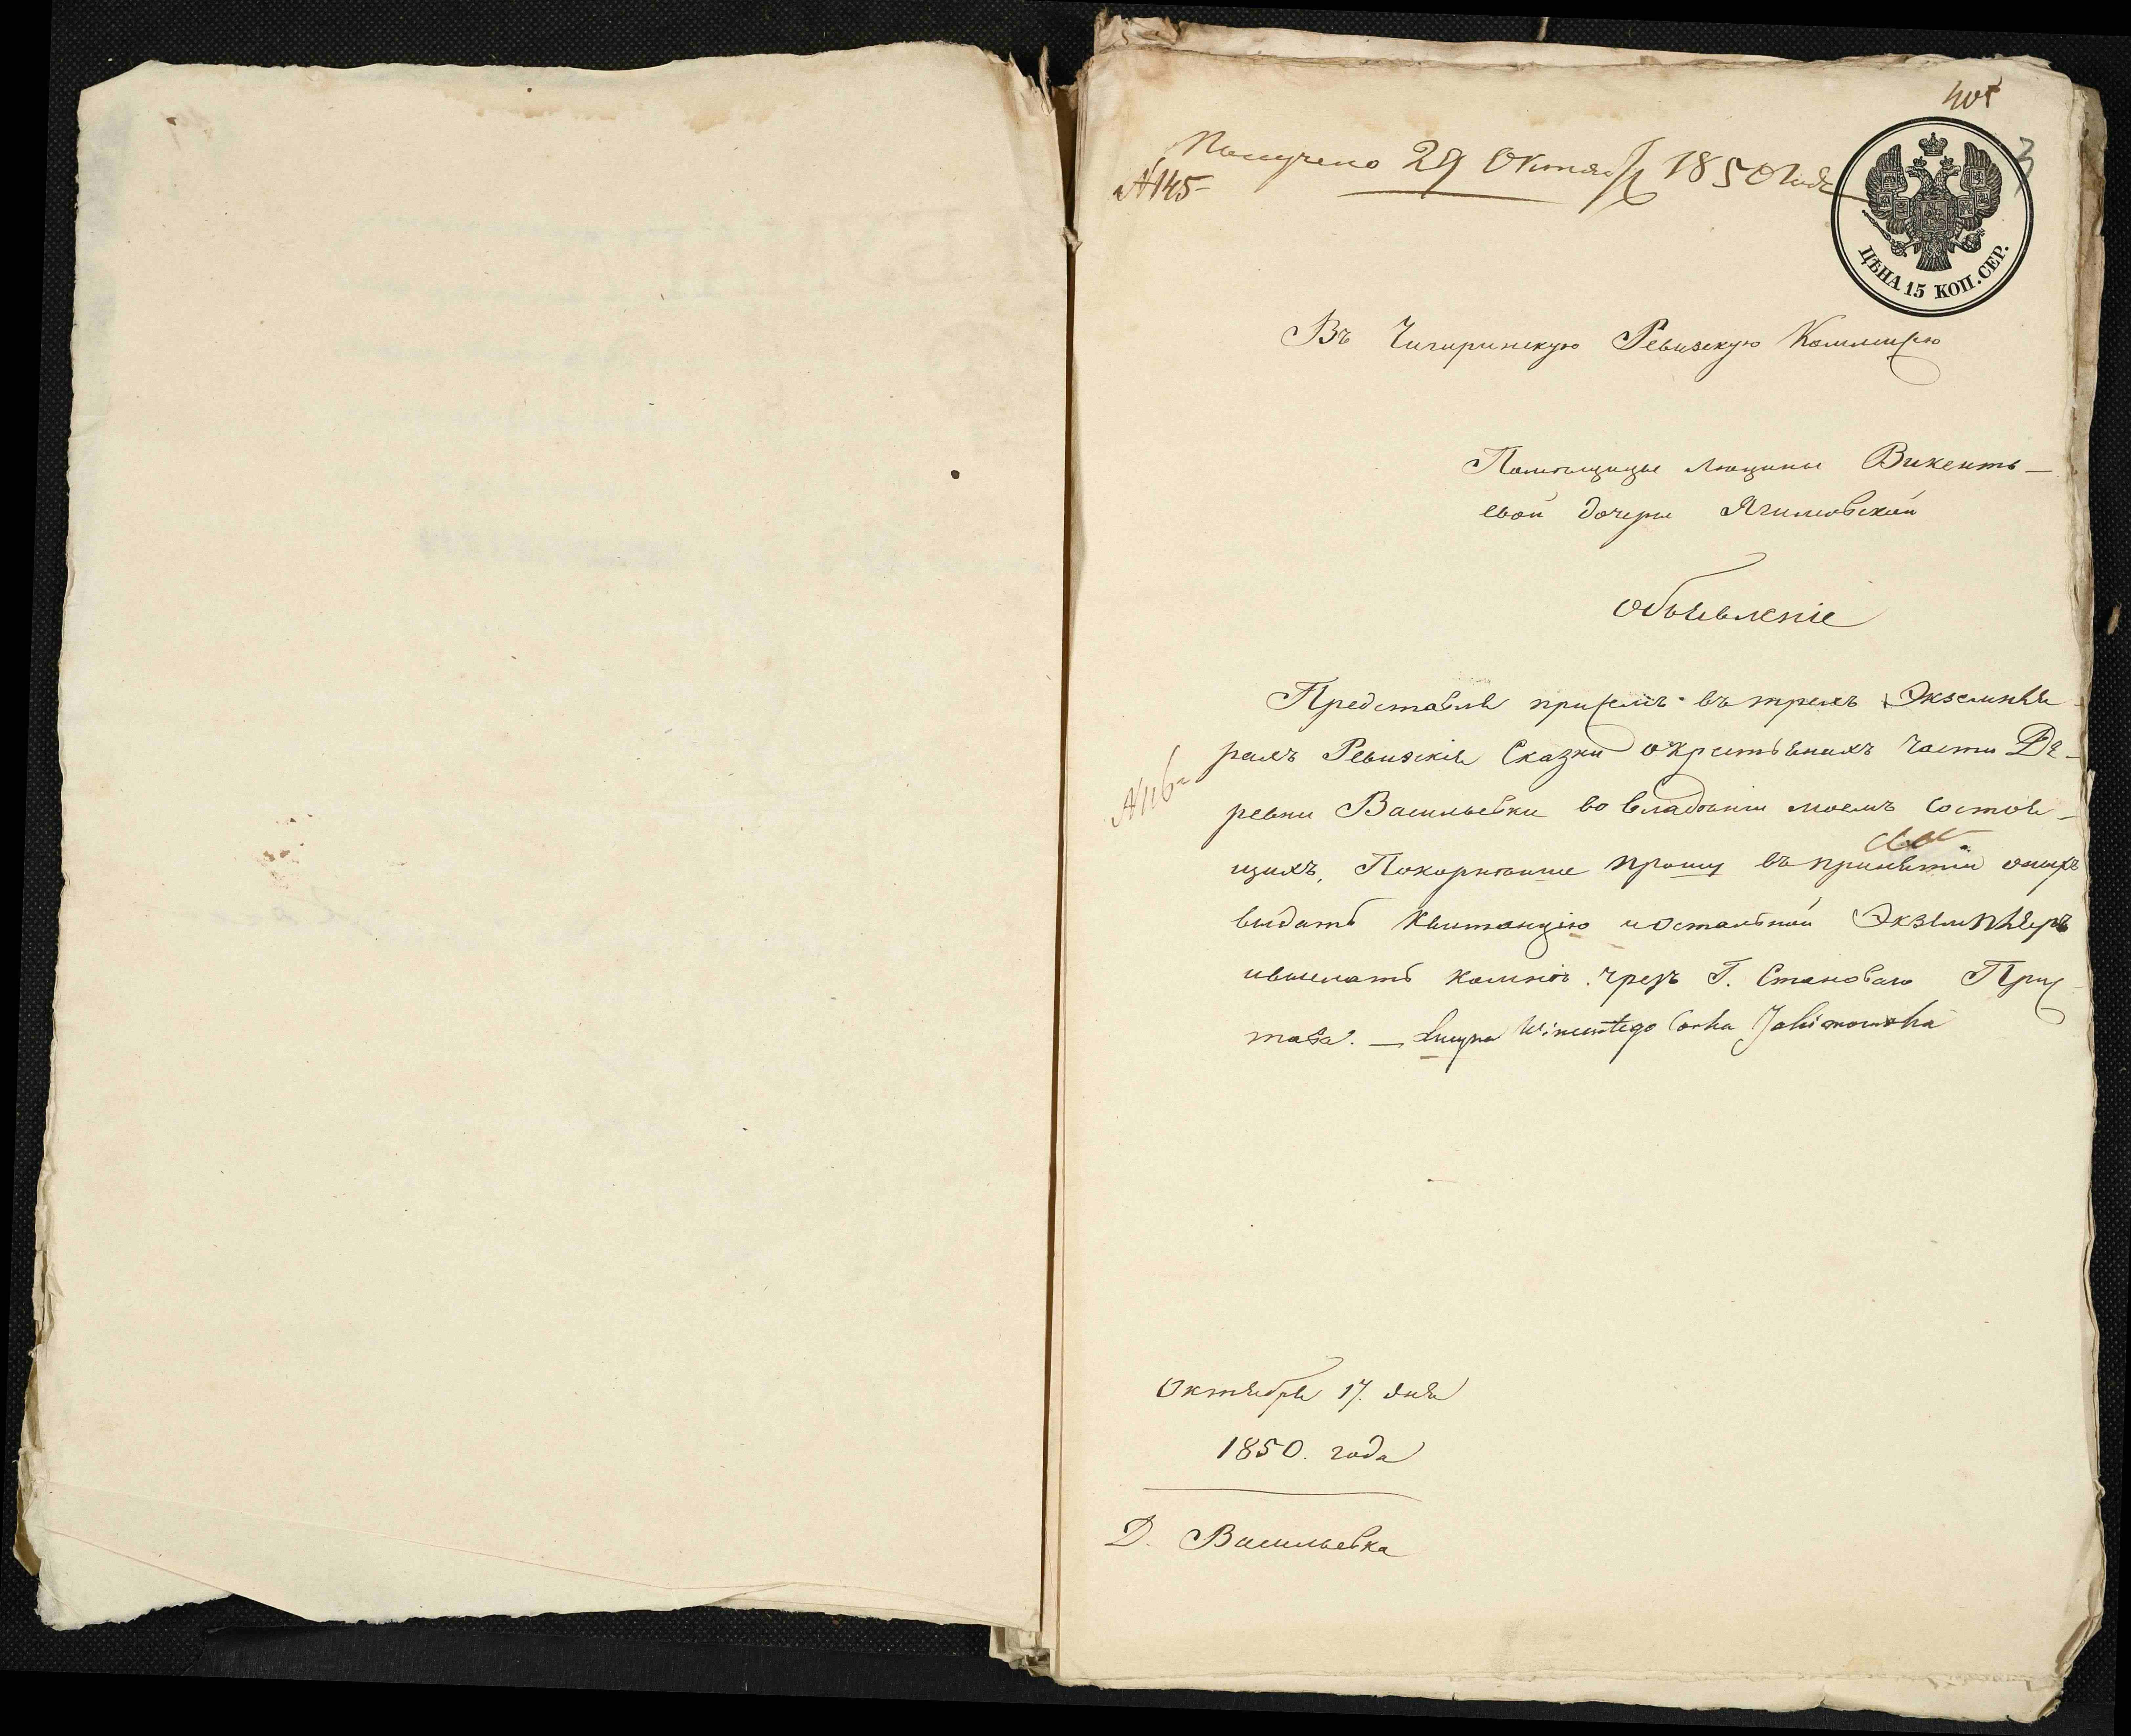 405
3
Получено 29 Октября 1850 года
№ 145
ЦѢНА 15 КОП. СЕР.
Въ Чигиринскую Ревизскую Коммисію
Помѣщицы Люцины Викенть-
евой дочери Якимовской
Объявленіе
Представляя присемъ въ трехъ Экземпля-
рахъ Ревизкія Сказки окрестьянахъ части Де-
№ 116
ревни Васильевки во владѣніи моемъ состоя-
щихъ, Покорнѣише прошу въ принятіи оныхъ
выдать квитанцію иостальной Экземпляръ
ивыслать комнѣ чрезъ Г. Становаго При-
става. — Lucyna Wincentego Corka Jakimowska
Октября 17. дня
1850. года
Д. Васильевка